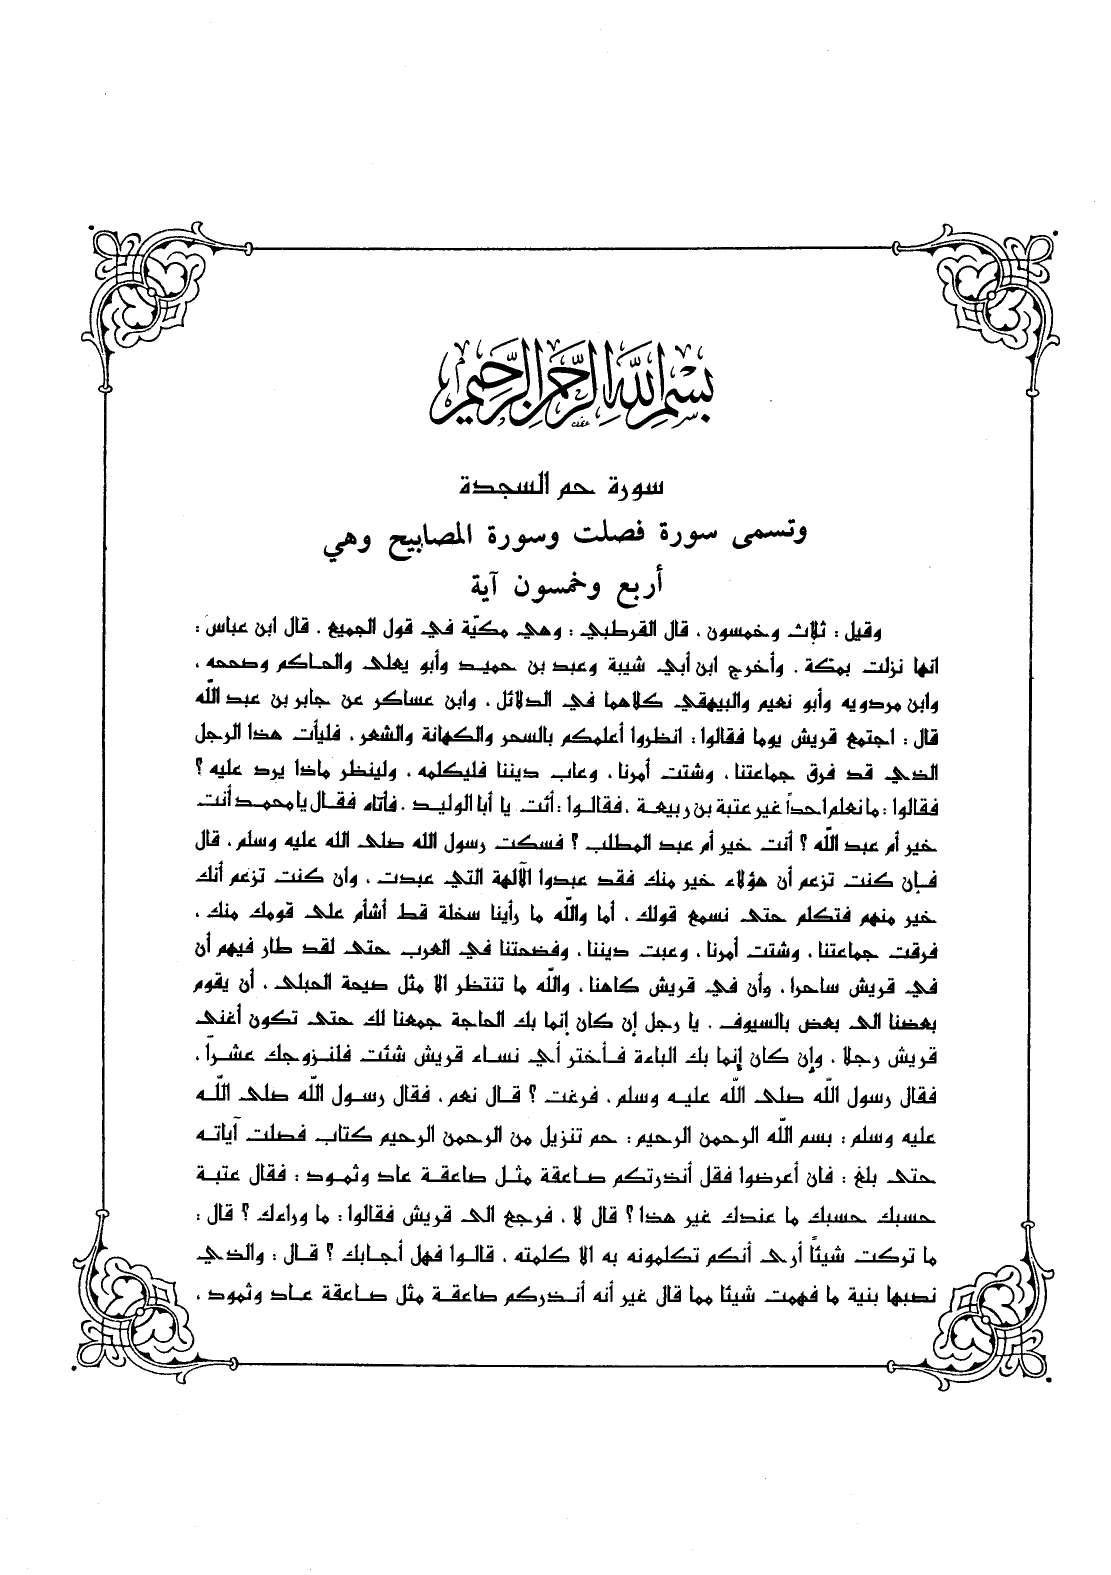 بسم الله الرحمن الرحيم
سورة حم السجدة
وتسمى سورة فصلت وسورة المصابيح وهي
أربع وخمسون آية
وقيل : ثلاث وخمسون ، قال القرطبي : وهي مكيّة في قول الجميع . قال ابن عباس :
انها نزلت بمكة . وأخرج ابن أبي شيبة وعبد بن حميد وأبو يعلى والحاكم وصححه ،
وابن مردويه وأبو نعيم والبيهقي كلاهما في الدلائل ، وابن عساكر عن جابر بن عبد اللّه
قال : اجتمع قريش يوما فقالوا : انظروا أعلمكم بالسحر والكهانة والشعر ، فليأت هذا الرجل
الذي قد فرق جماعتنا ، وشتت أمرنا ، وعاب ديننا فليكلمه ، ولينظر ماذا يرد عليه ؟
فقالوا : ما نعلم احداً غير عتبة بن ربيعة ، فقالوا : أئت يا أبا الوليد . فأتاه فقال يا محمد أنت
خير أم عبد اللّه ؟ أنت خير أم عبد المطلب ؟ فسكت رسول الله صلى الله عليه وسلم . قال
فإن كنت تزعم أن هؤلاء خير منك فقد عبدوا الآلهة التي عبدت ، وان كنت تزعم أنك
خير منهم فتكلم حتى نسمع قولك ، أما واللّه ما رأينا سخلة قط أشأم على قومك منك ،
فرقت جماعتنا ، وشتت أمرنا ، وعبت ديننا ، وفضحتنا في العرب حتى لقد طار فيهم أن
في قريش ساحرا ، وأن في قريش كاهنا ، واللّه ما تنتظر الا مثل صيحة الحبلى ، أن يقوم
بعضنا الى بعض بالسيوف . يا رجل إن كان إنما بك الحاجة جمعنا لك حتى تكون أغنى
قريش رجلا ، وإن كان إنما بك الباءة فأختر أي نساء قريش شئت فلنزوجك عشراً ،
فقال رسول اللّه صلى اللّه عليه وسلم ، فرغت ؟ قال نعم ، فقال رسول اللّه صلى اللّه
عليه وسلم : بسم اللّه الرحمن الرحيم : حم تنزيل من الرحمن الرحيم كتاب فصلت آياته
حتى بلغ : فان أعرضوا فقل أنذرتكم صاعقة مثل صاعقة عاد وثمود : فقال عتبة
حسبك حسبك ما عندك غير هذا ؟ قال لا ، فرجع الى قريش فقالوا : ما وراءك ؟ قال :
ما تركت شيئاً أرى أنكم تكلمونه به الا كلمته ، قالوا فهل أجابك ؟ قال : والذي
نصبها بنية ما فهمت شيئا مما قال غير أنه أنذركم صاعقة مثل صاعقة عاد وثمود ،